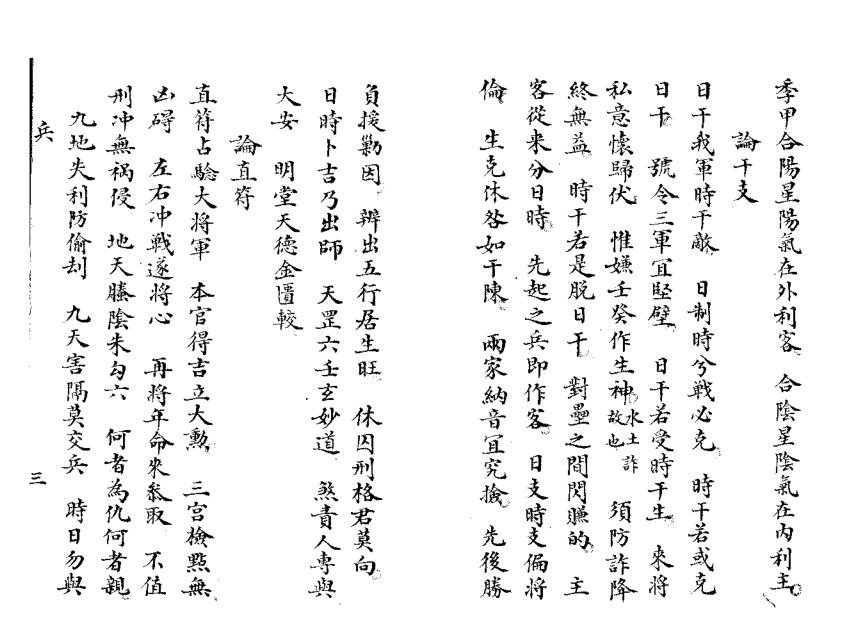 季甲合陽星陽氣在外利客 合陰星陰氣在內利主
論干支
日干我軍時干敵 日制時兮戰必克 時干若或克
日干 號令三軍宜堅壁 日干若受時干生 來將
私意懷歸伏 惟嫌壬癸作生神 水土詐故也 須防詐降
終無益 時干若是脫日干 對壘之間閃賺的 主
客從來分日時 先起之兵即作客 日支時支偏將
倫 生克休咎如干陳 兩家納音宜究撿 先後勝
負援勦因 辨出五行居生旺 休囚刑格君莫向
日時卜吉乃出師 天罡六壬玄妙道 煞貴人專與
大安 明堂天德金匱較
論直符
直符占驗大將軍 本官得吉立大勲 三宮檢點無
凶碍 左右冲戰遂將心 再將年命來叅取 不值
刑冲無禍侵 地天螣陰朱勾六 何者為仇何者親
九地失利防偷刦 九天害隔莫交兵 時日勿與
兵 三